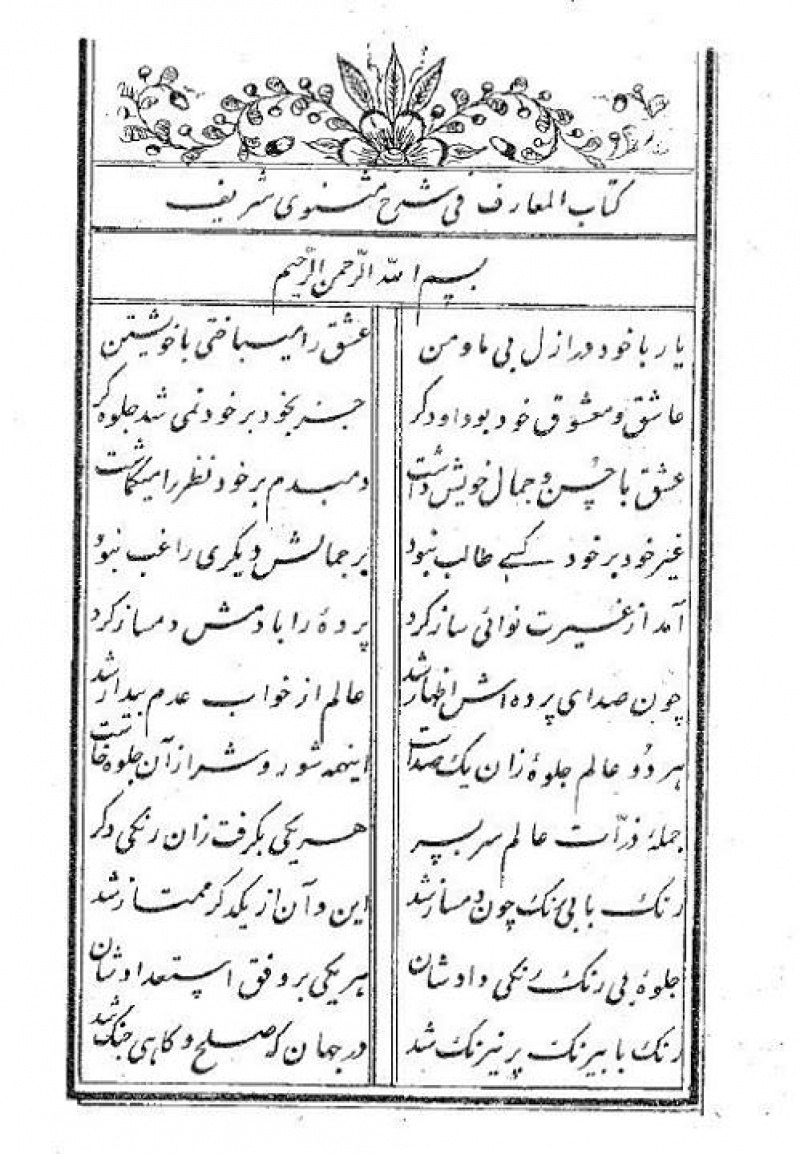 کتاب المعارف فی شرح مثنوی شریف
بسم الله الرّحمن الرّحیم
یار با خود در ازل بی ما و من عشق را میباختی با خویشتن
عاشق و معشوق خود بود او دکر جز بخود بر خود نمی شد جلوه کر
عشق با حُسن و جمال خویش داشت دمبدم بر خود نظر را میکماشت
غیر خود بر خود کسی طالب نبود بر جمالش دیکری راغب نبود
آمد از غیرت نوائی ساز کرد پردهٔ را با دمش دمساز کرد
چون صدای پرده اش اظهار شد عالم از خواب عدم بیدار شد
هر دُو عالم جلوهٔ زان یک صداست اینهمه شور و شر از آن جلوه خاست
جملهٔ ذرّات عالم سر بسر هر یکی بکرفت زان رنکی دکر
رنک با بی رنک چون دمساز شد این و آن از یکدکر ممتاز شد
جلوهٔ بی رنک رنکی دادشان هر یکی بر وفق استعدادشان
رنک با بیرنک پر نیرنک شد در جهان که صلح و کاهی جنک شد